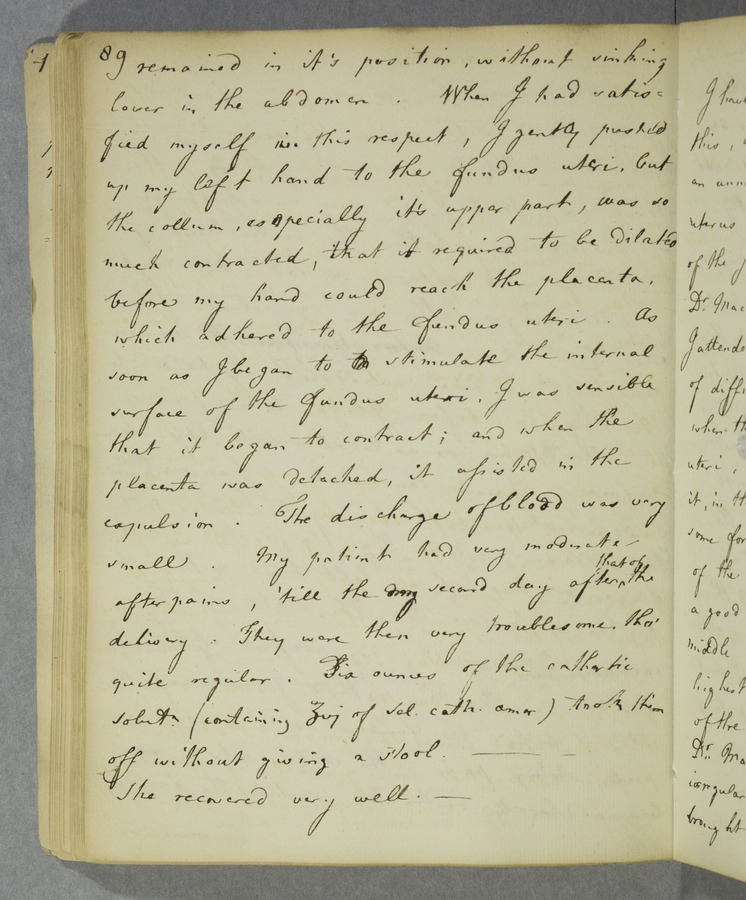 89 remained in it's position, without sinking
lower in the abdomen. When I had satis=
fied myself in this respect, I gently pushed
up my left hand to the fundus uteri, but
the collum, especially it's upper part, was so
much contracted, that it required to be dilated
before my hand could reach the placenta,
which adhered to the fundus uteri. As
soon as I began to stimulate the internal
surface of the fundus uteri, I was sensible
that it began to contract; and when the
placenta was detached, it assisted in the
expulsion. The discharge of blood was very
small. My patient had very moderate
that of
after pains, 'till the second day after, the
delivery. They were then very troublesome, tho'
quite regular. Six ounces of the cathartic
solutn (containing ʒvj of sal. cath. amar) took them
off without giving a stool. —
She recovered very well. —
J
I have
this,
an
uterus
of the
Dr. Mac
I attende
of diffi
when th
uteri,
it, in th
some for
of the
a good
middle
highest
of the
Dr. Ma
irregular
brought